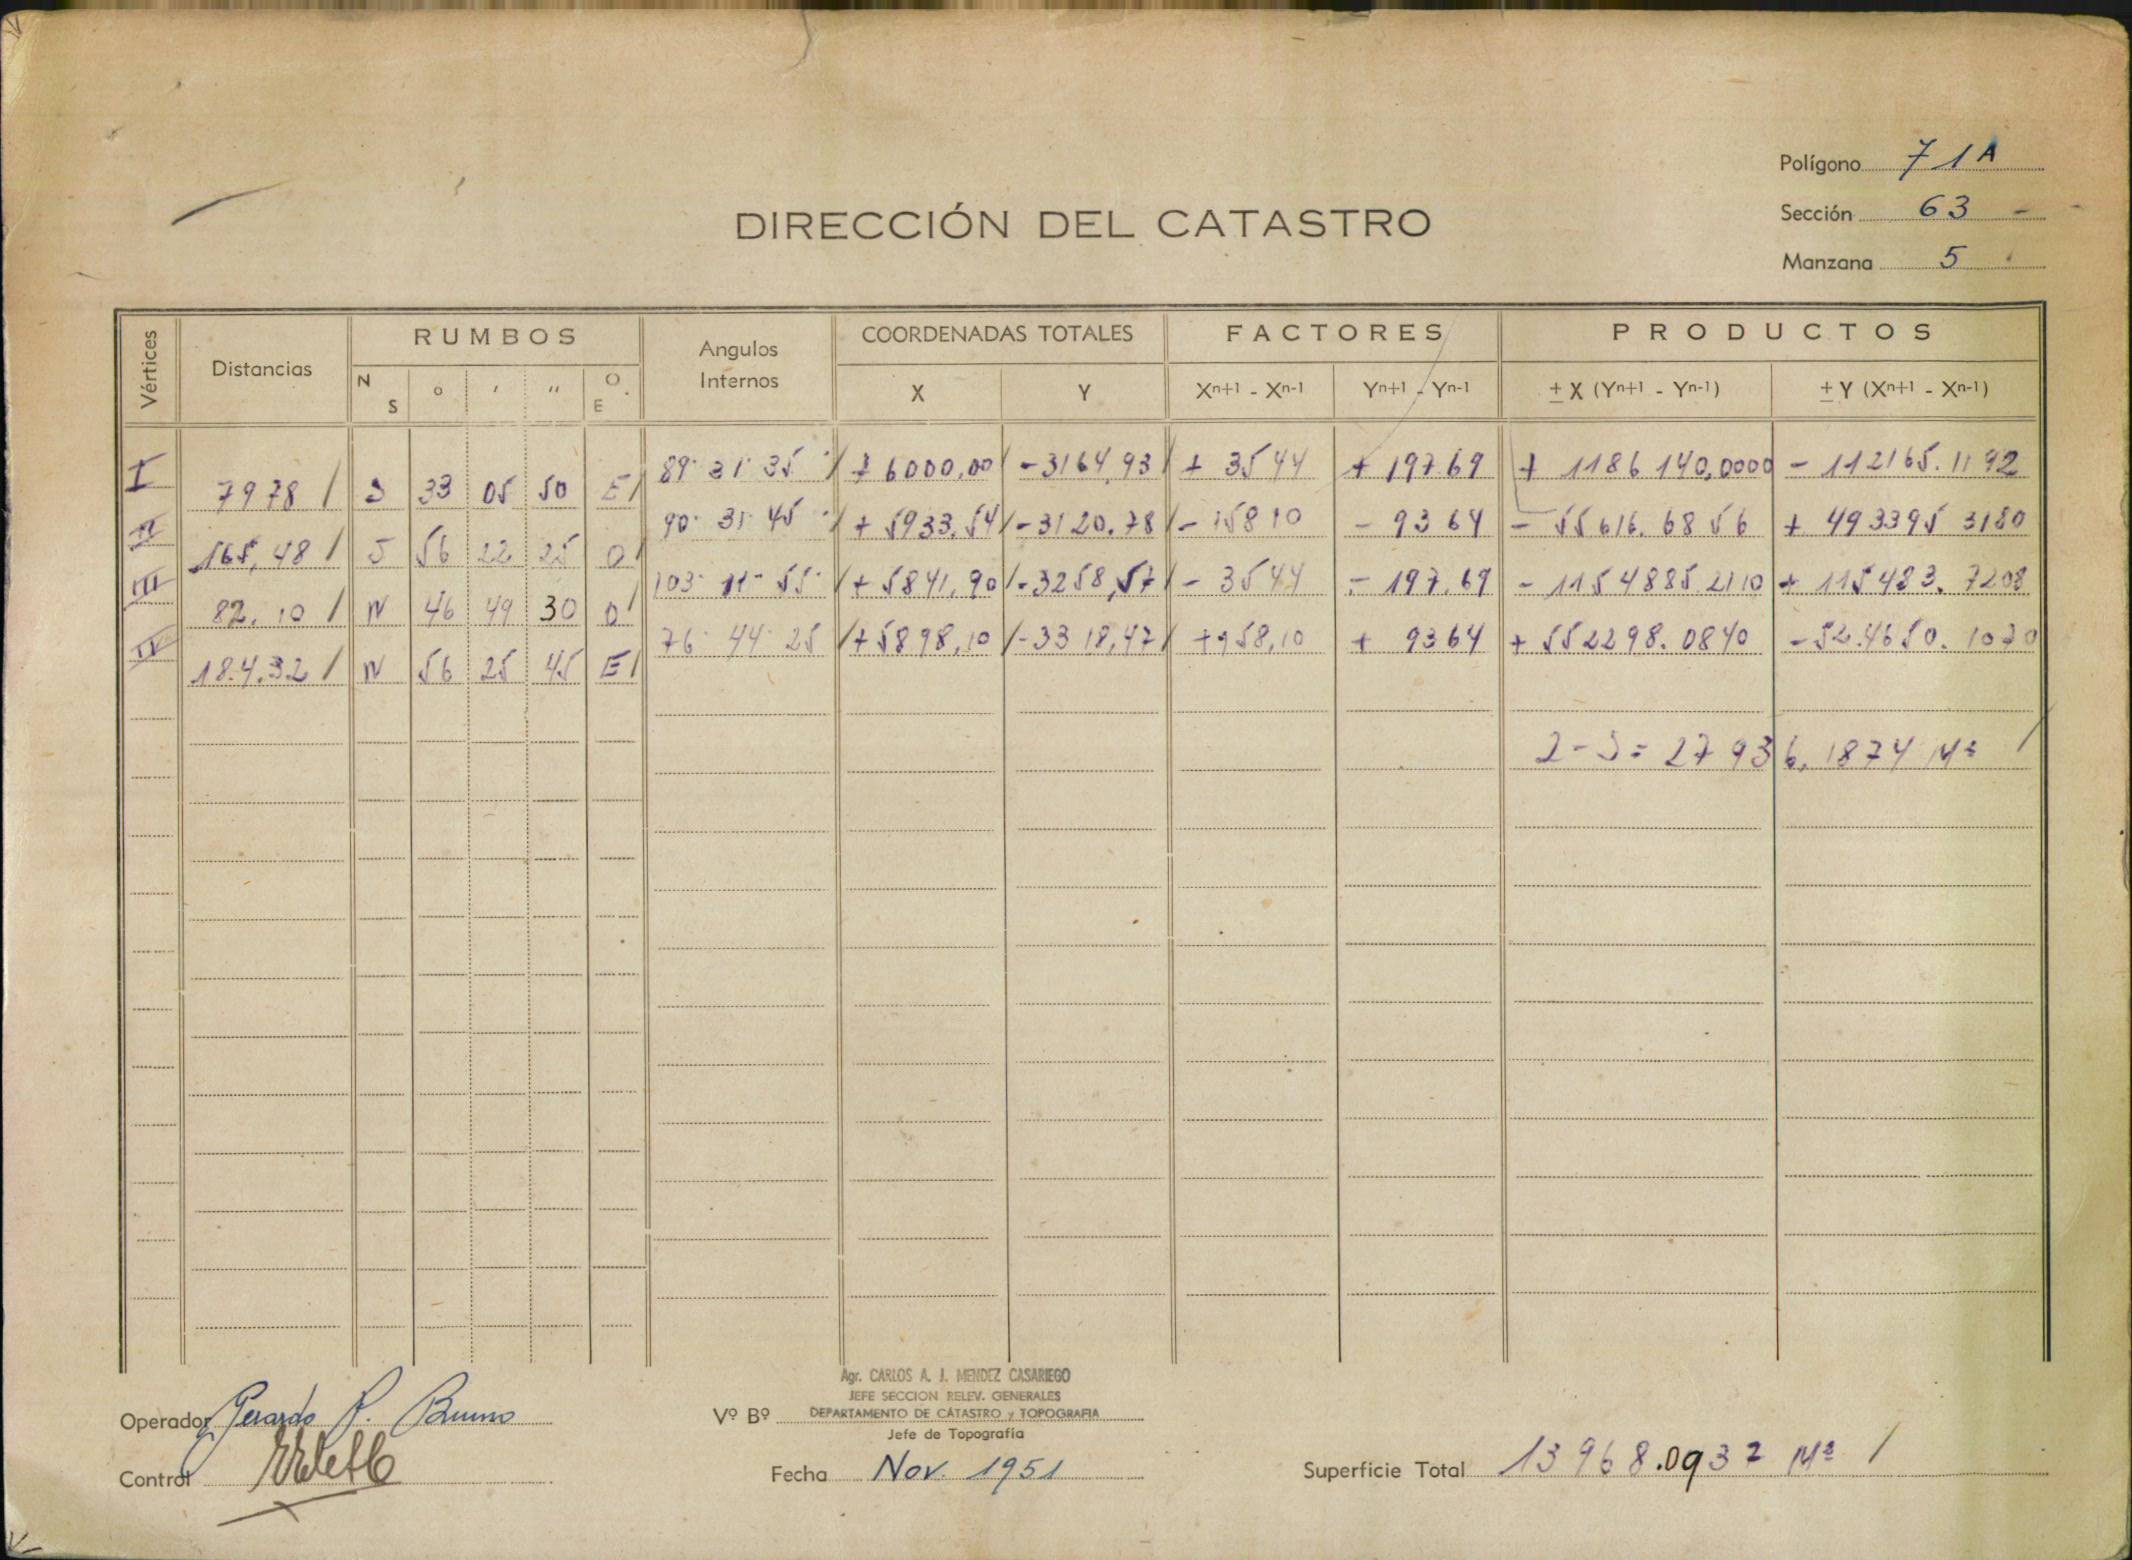 Polígono 71A
Sección 63 -
Manzana 5
DIRECCIÓN DEL CATASTRO
Vértices Distancias RUMBOS Angulos Internos COORDENADAS TOTALES FACTORES PRODUCTOS
N S o ' '' O E X Y Xn+1 - Xn-1 Yn+1 - Yn-1 ± X (Yn+1 - Yn-1) ± Y (Xn+1 - Xn-1)
I 89° 31' 35'' / + 6000,00 / - 3164,93 / + 3544 + 197.69 + 1186140,0000 - 112165.1192
7978 / S 33 05 50 E /
II 90° 31' 45'' / + 5933,54 / - 3120.78 / - 15810 - 9364 - 55616.6856 + 493395 3180
165,48 / S 56 22 25 O /
III 103° 11' 55'' / + 5841,90 / - 3258,57 / - 3544 - 197.69 - 1154885.2110 + 115483.7208
82.10 / N 46 49 30 O /
IV 76° 44' 25 / + 5898,10 / - 3318,47 / + 158,10 + 9364 + 552298.0840 - 52.4650.1070
184.32 / N 56 25 45 E /
2-S = 27936,1874 M² /
Operador Gerardo P. Bruno
Control
Vº Bº Agr. CARLOS A. J. MENDEZ CASARIEGO
JEFE SECCION RELEV. GENERALES
DEPARTAMENTO DE CATASTRO y TOPOGRAFIA
Jefe de Topografía
Fecha Nov. 1951
Superficie Total 13968.0937 M² /